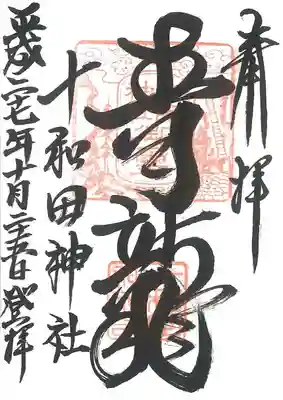 奉拝
青龍
十和田神社
平成二七年十月二五日登拝